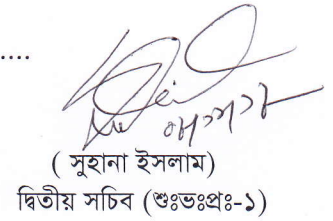 ....
( সুহানা ইসলাম)
দ্বিতীয় সচিব (শুঃভঃপ্রঃ-১)